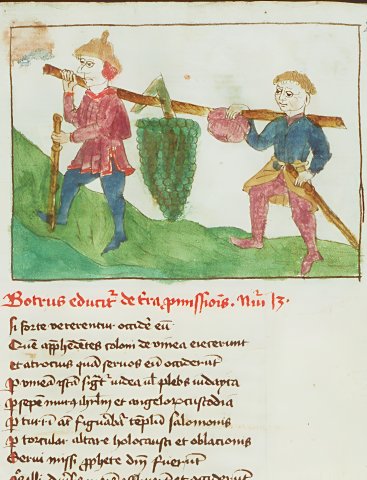 Botrus educit᷑ de t᷑ra ꝓmissiōis. Nūi 13.
si forte vererentur occidēͤ eū
Quē app̄hēdētes coloni de vinea eiecerunt
et atrocius quā seruos eū occiderunt
ꝑ vineā istā sigt᷑ iudea ul̓ plebs iudayca
ꝑ sepem murꝰ ihrl̄m et angeloꝝ custodia
ꝑ turrī aūt figuabat᷑ templū salomonis
ꝑ torcular altare holocausti et oblationis
Serui missi ꝓphete dn̄i fuerunt
occiderunt